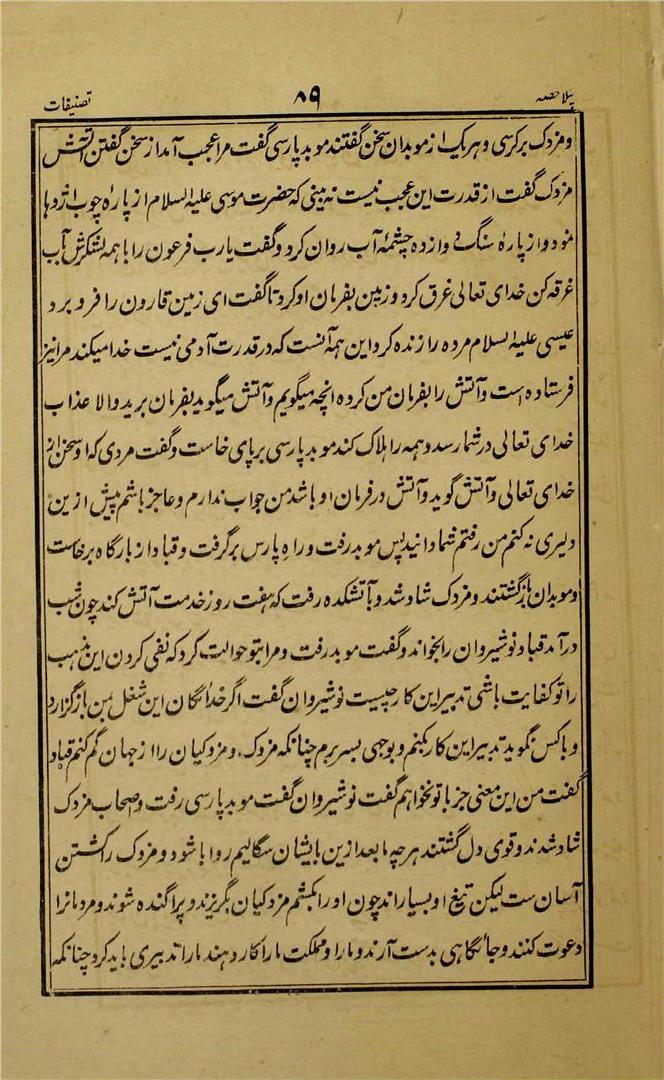 پہلا حصہ ۸۹ تصنیفات
و مزدک بر کرسی و هر یک از موبدان سخن گفتند موبد پارسی گفت مرا عجب آمد از سخن گفتن آتش
مزدک گفت از قدرت این عجب نیست نه بینی که حضرت موسی علیه السلام از پارهٔ چوب اژدها
نمود و از پارهٔ سنگ دوازده چشمهٔ آب روان کرد و گفت یارب فرعون را با همه لشکرش آب
غرقه کن خدای تعالی غرق کرد و زمین بفرمان او کرد تا گفت ای زمین قارون را فرو برد
عیسی علیه السلام مرده را زنده کرد این همه آنست که در قدرت آدمی نیست خدا میکند مرا نیز
فرستاده است و آتش را بفرمان من کرده انچه میگویم و آتش میگوید بفرمان برید والا عذاب
خدای تعالی در شما رسد و همه را هلاک کند موبد پارسی بر پای خاست و گفت مردی که او سخن از
خدای تعالی و آتش گوید و آتش در فرمان او باشد من جواب ندارم و عاجز باشم پیش ازین
دلیری نه کنم من رفتم شما دانید پس موبد رفت و راه پارس برگرفت و قباد از بارگاه برخاست
و موبدان بازگشتند و مزدک شاد شد و بآتشکده رفت که هفت روز خدمت آتش کند چون شب
درآمد قباد نوشیروان را بخواند و گفت موبد رفت و مرا بتو حوالت کرد که نفی کردن این مذهب
را تو کفایت باشی تدبیر این کار چیست نوشیروان گفت اگر خدائگان این شغل بمن بازگزارد
و با کس نگوید تدبیر این کار بکنم و بوجهی بسر برم چنانکه مزدک و مزدکیان را از جهان گم کنم قباد
گفت من این معنی جز با تو نخواهم گفت نوشیروان گفت موبد پارسی رفت و اصحاب مزدک
شاد شدند و قوی دل گشتند هر چه ما بعد ازین با ایشان سگالیم روا باشد و مزدک را کشتن
آسان ست لیکن تبع او بسیار اند چون او را بکشم مزدکیان بگریزند و پراگنده شوند و مردمانرا
دعوت کنند و جائگاهی بدست آرند و ما را و مملکت ما را کار دهند ما را تدبیری باید کرد چنانکه